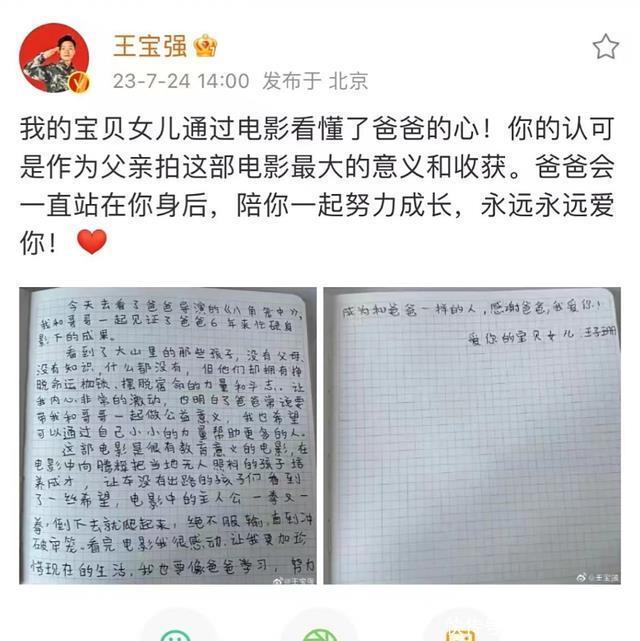 王宝强
23-7-24 14:00 发布于 北京
我的宝贝女儿通过电影看懂了爸爸的心！你的认可
是作为父亲拍这部电影最大的意义和收获。爸爸会
一直站在你身后，陪你一起努力成长，永远永远爱
你！
今天去看了爸爸导演的《八角笼中》，
我和哥哥一起见证了爸爸6年来付
影下的成果。
看到了大山里的那些孩子，没有父母，
没有知识，什么都没有，但他们却拥有挣
脱命运枷锁、摆脱宿命的力量和斗志。让
我内心非常的激动，也明白了爸爸常说要
带我和哥哥一起做公益意义，我也希望
可以通过自己小小的力量帮助更多的人。
这部电影是很有教育意义的电影，在
电影中向腾辉把当地无人照料的孩子培
养成才，让本没有出路的孩子们看到
了一丝希望，电影中的主人公一拳又一
拳，倒下去就爬起来，绝不服输，直到冲
破牢笼。看完电影我很感动，让我更加珍
惜现在的生活，我也要像爸爸学习，努力
@王宝强
成为和爸爸一样的人，感谢爸爸，我爱你！
爱你的宝贝女儿 王子珊
@王宝强